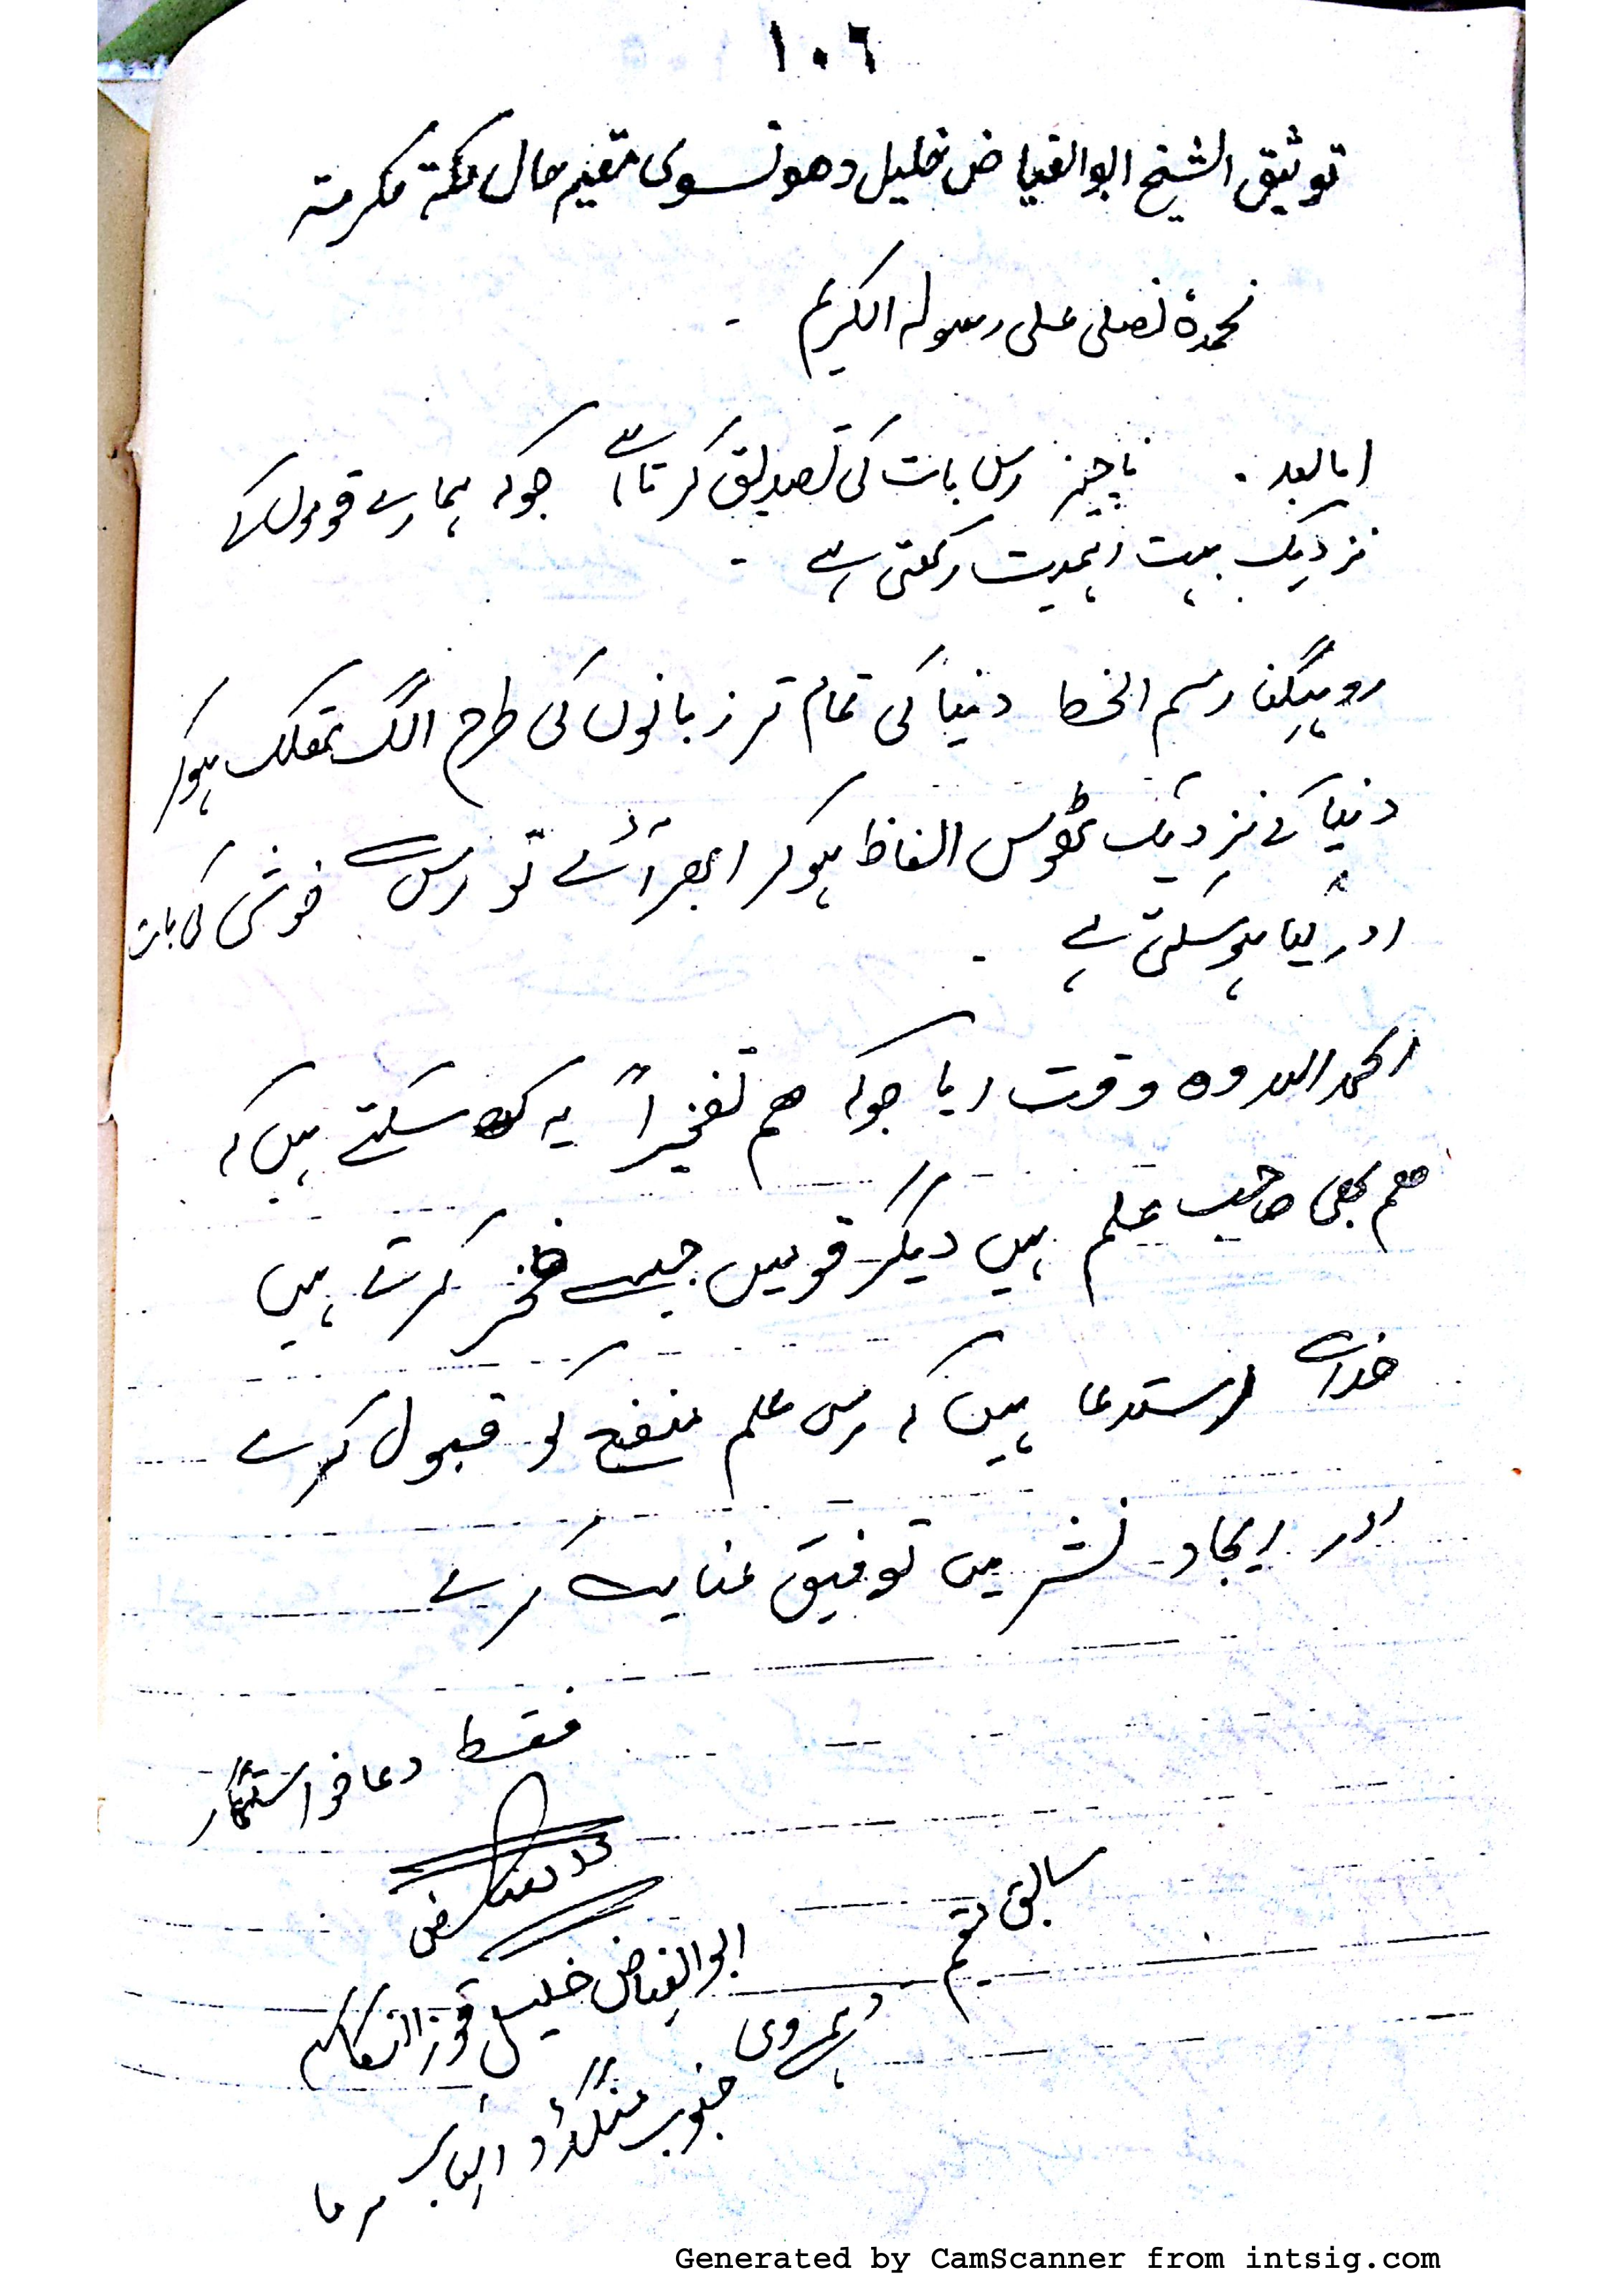 ١٠٦
توثیق الشیخ ابوالفیاض خلیل دھونسوی مقیم حال مکة مکرمتہ
نحمدہٗ نصلی علی رسولہ الکریم ۔
اما بعد . ناچیز اس بات کی تصدیق کرتا ہے جوکہ ہمارے قوموں کے
نزدیک بہت اہمیت رکھتی ہے ۔
روہینگا رسم الخط دنیا کی تمام تر زبانوں کی طرح الگ تھلگ ہوکر
دنیا کے نزدیک ٹھوس الفاظ ہوکر ابھر آئے تو اس سے خوشی کی بات
اور کیا ہوسکتی ہے ۔
الحمد اللہ وہ وقت آیا جوکہ ھم تفخیراً یہ کہہ سکتے ہیں کہ
ھم بھی صاحب علم ہیں دیگر قومیں جیسے فخر کرتے ہیں
خدا سے استدعا ہیں کہ اس علم منفع کو قبول کرے
اور ایجاد نشر میں توفیق عنایت کرے
فقط دعا خواستگار
ابوالفیاض خلیل
سابق مقیم
جنوب منگڈو
برما
Generated by CamScanner from intsig.com